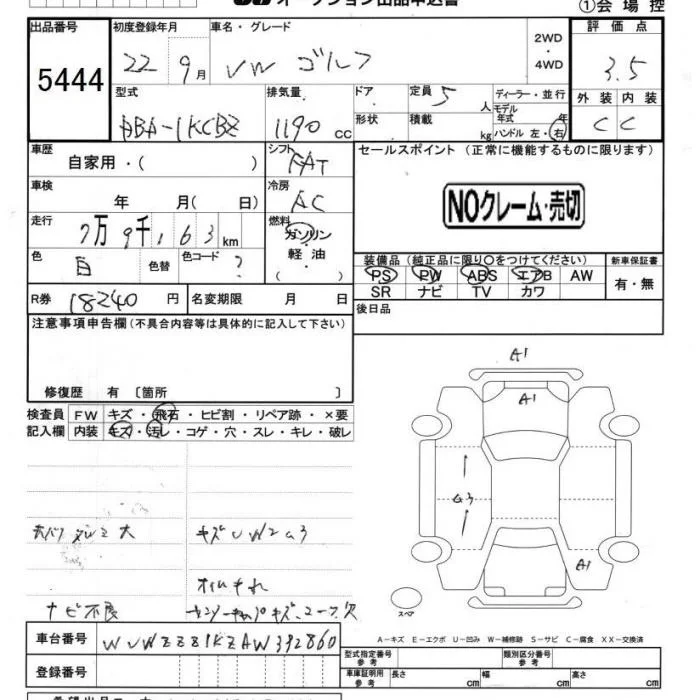 オークション出品申込書
①会場控
出品番号
5444
初度登録年月
22 9月
車名・グレード
VW ゴルフ
2WD
・
4WD
評価点
3.5
外装 内装
C C
型式
ABA-1KCBZ
排気量
1190 cc
ドア
形状
定員 5 人
積載 kg
ディーラー・並行
モデル年式 年
ハンドル 左・右
車歴
自家用・( )
シフト
FAT
セールスポイント (正常に機能するものに限ります)
NOクレーム・売切
車検
年 月( 日)
冷房
AC
走行
7万9千163km
燃料
ガソリン
・
軽油
( )
色
白
色替
色コード
?
装備品 (純正品に限り○をつけてください)
PS PW ABS エアB AW
SR ナビ TV カワ
新車保証書
有・無
R券 18240 円
名変期限 月 日
後日品
注意事項申告欄 (不具合内容等は具体的に記入して下さい)
修復歴 有 〔箇所 〕
検査員記入欄
FW キズ・飛石・ヒビ割・リペア跡・×要
内装 キズ・汚レ・コゲ・穴・スレ・キレ・破レ
A1
A1
A1
スペア
オイルもれ
ナビ不良
車台番号
WVWZZZ1KZAW392860
登録番号
A-キズ E-エクボ U-凹み W-補修跡 S-サビ C-腐食 XX-交換済
型式指定番号 参考
類別区分番号 参考
車庫証明用 参考
長さ cm
幅 cm
高さ cm